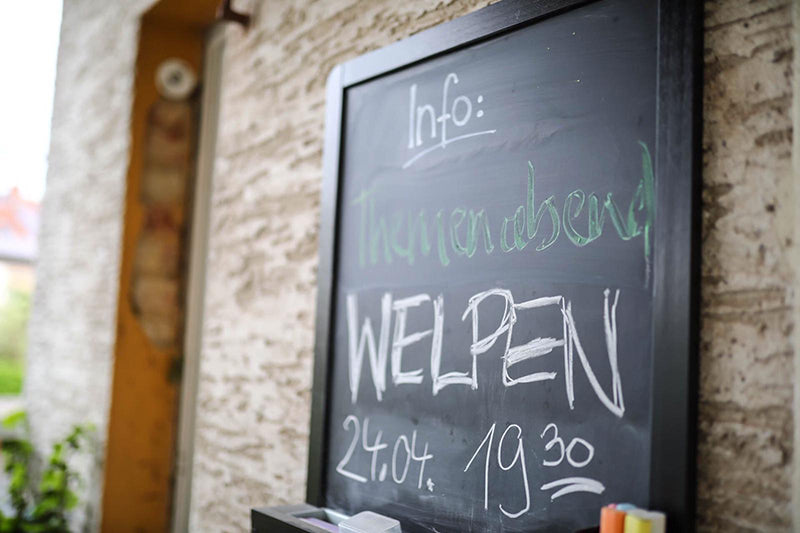 Info:
Themenabend
WELPEN
24.04. 19 30